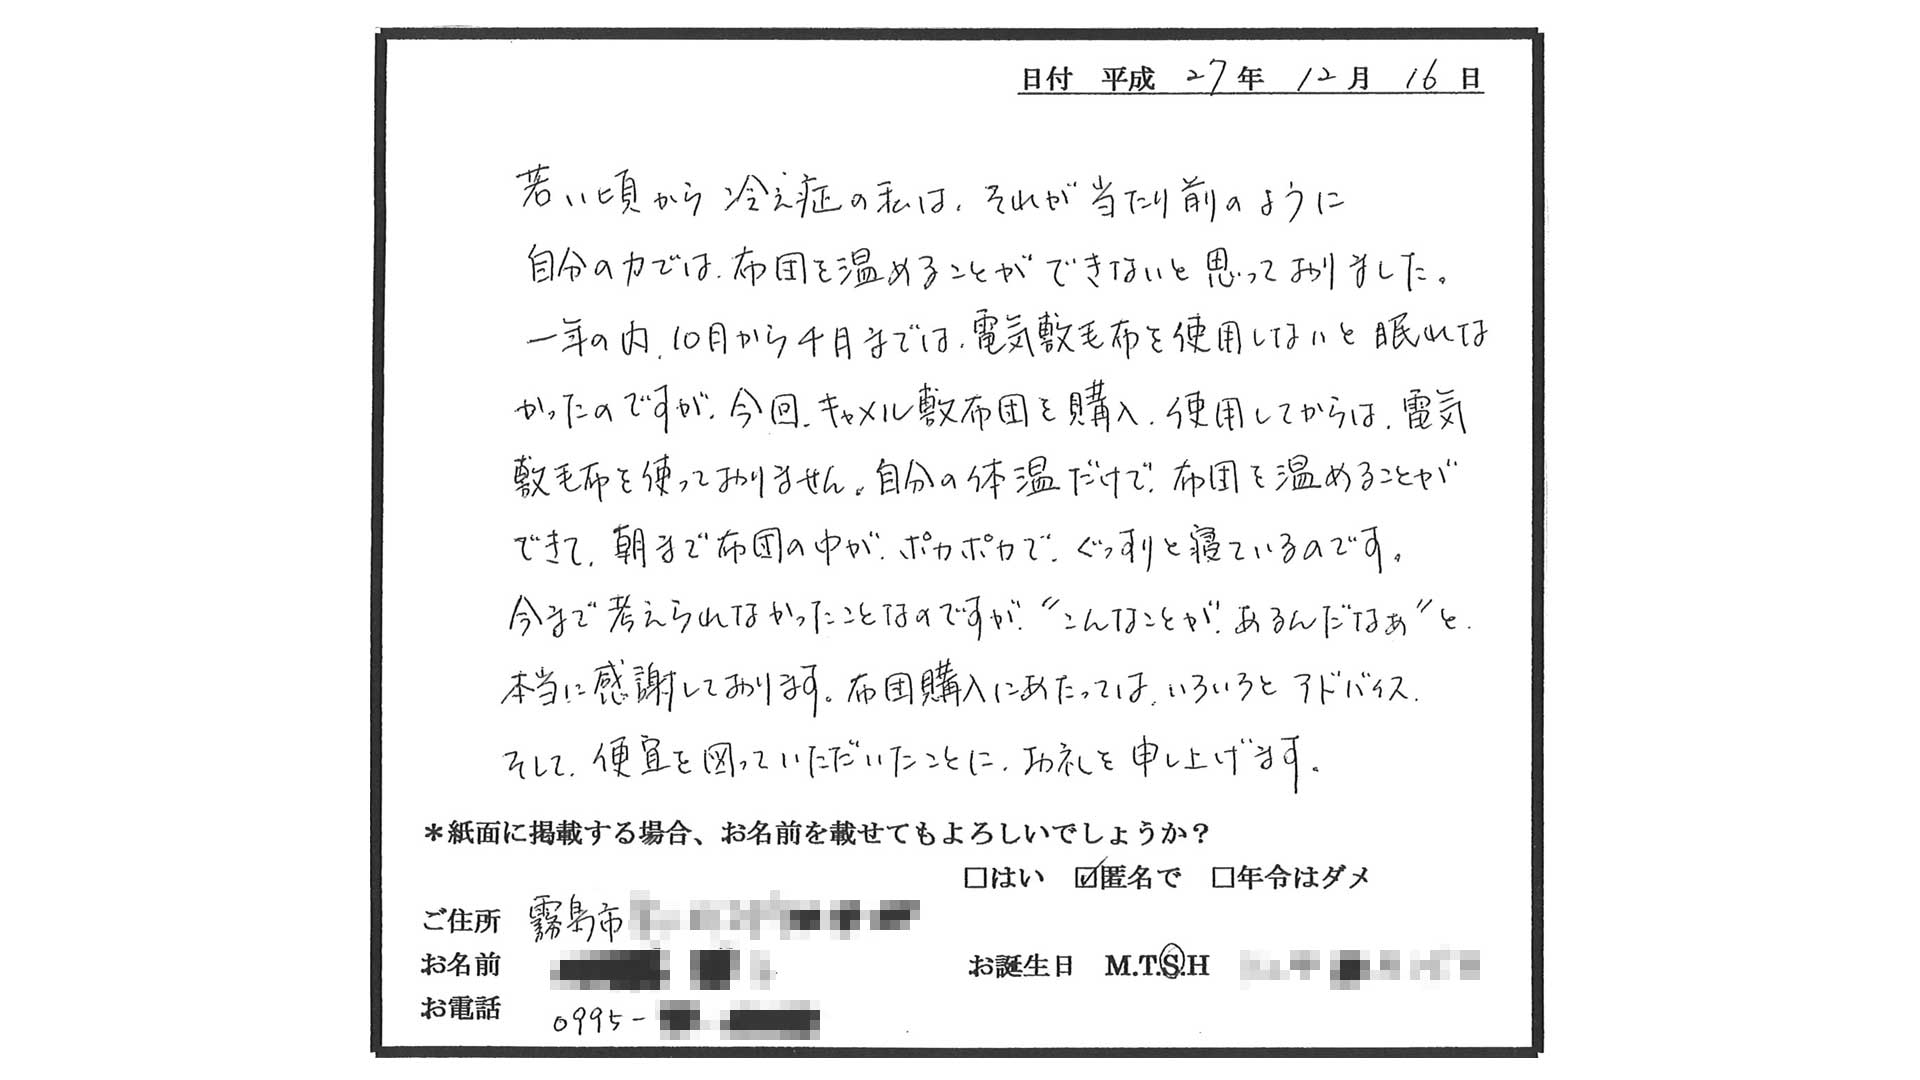 日付 平成 27年 12月 16日
若い頃から冷え症の私は、それが当たり前のように
自分の力では、布団を温めることができないと思っておりました。
一年の内、10月から4月までは、電気敷毛布を使用しないと眠れな
かったのですが、今回、キャメル敷布団を購入、使用してからは、電気
敷毛布を使っておりません。自分の体温だけで、布団を温めることが
できて、朝まで布団の中が、ポカポカで、ぐっすりと寝ているのです。
今まで考えられなかったことなのですが、〝こんなことが、あるんだなぁ〟と、
本当に感謝しております。布団購入にあたっては、いろいろとアドバイス、
そして、便宜を図っていただいたことに、お礼を申し上げます。
＊紙面に掲載する場合、お名前を載せてもよろしいでしょうか？
□はい ☑匿名で □年令はダメ
ご住所 霧島市
お名前
お誕生日 M.T.S.H
お電話 0995-